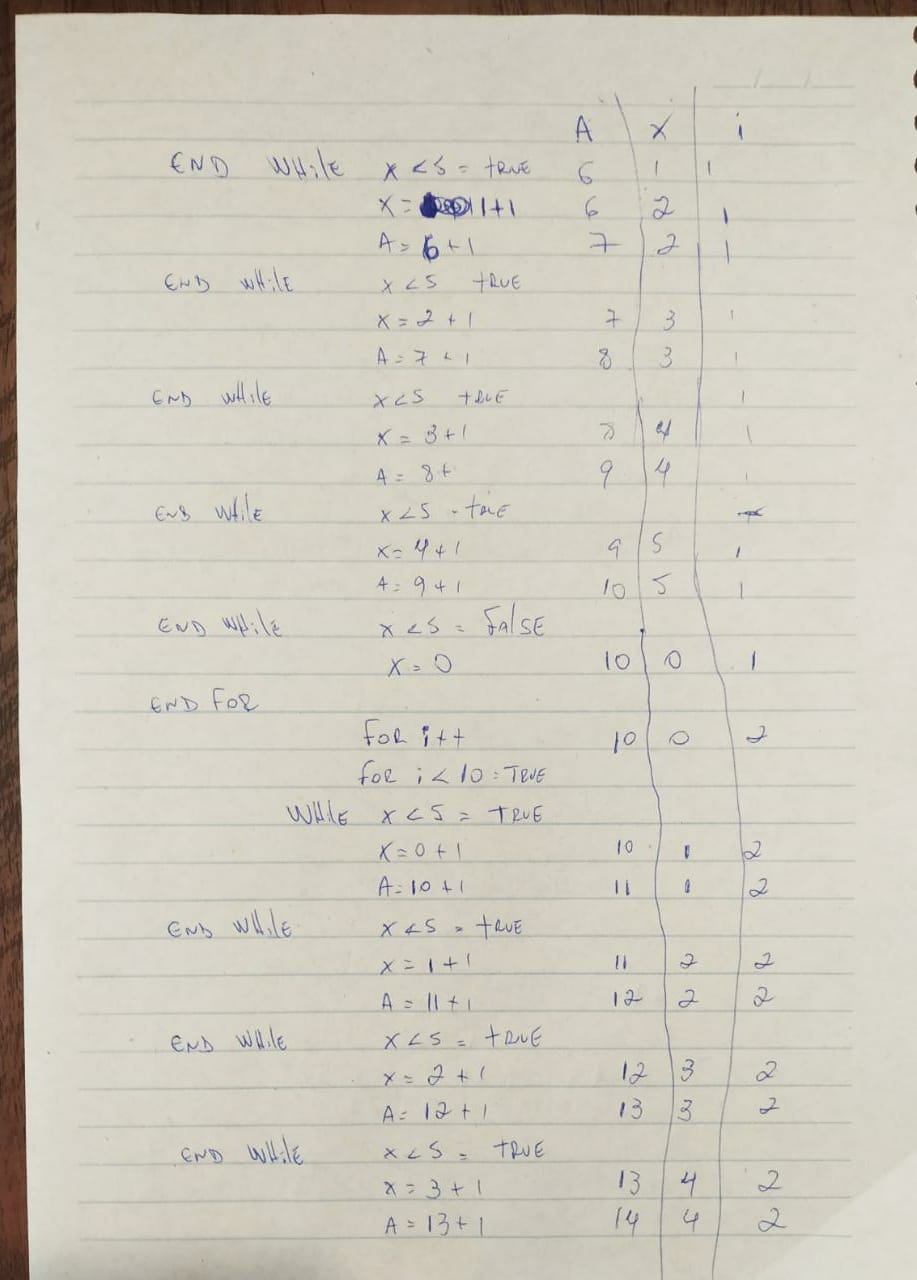 A x i
END WHilE x < 5 = tRUE 6 1 1
X = 1+1 6 2 1
A = 6 + 1 7 2 1
END WHilE x < 5 tRUE
X = 2 + 1 7 3 1
A = 7 + 1 8 3 1
END WHilE x < 5 tRUE 1
X = 3 + 1 8 4 1
A = 8 + 9 4 1
END WHilE x < 5 = tRUE
X = 4 + 1 9 5 1
A = 9 + 1 10 5 1
END WHilE x < 5 = FAlSE
X = 0 10 0 1
END FOR
FOR i++ 10 0 2
FOR i < 10 = TRUE
WHilE x < 5 = TRUE
X = 0 + 1 10 1 2
A = 10 + 1 11 1 2
END WHilE x < 5 = tRUE
X = 1 + 1 11 2 2
A = 11 + 1 12 2 2
END WHilE x < 5 = tRUE
X = 2 + 1 12 3 2
A = 12 + 1 13 3 2
END WHilE x < 5 = tRUE
X = 3 + 1 13 4 2
A = 13 + 1 14 4 2